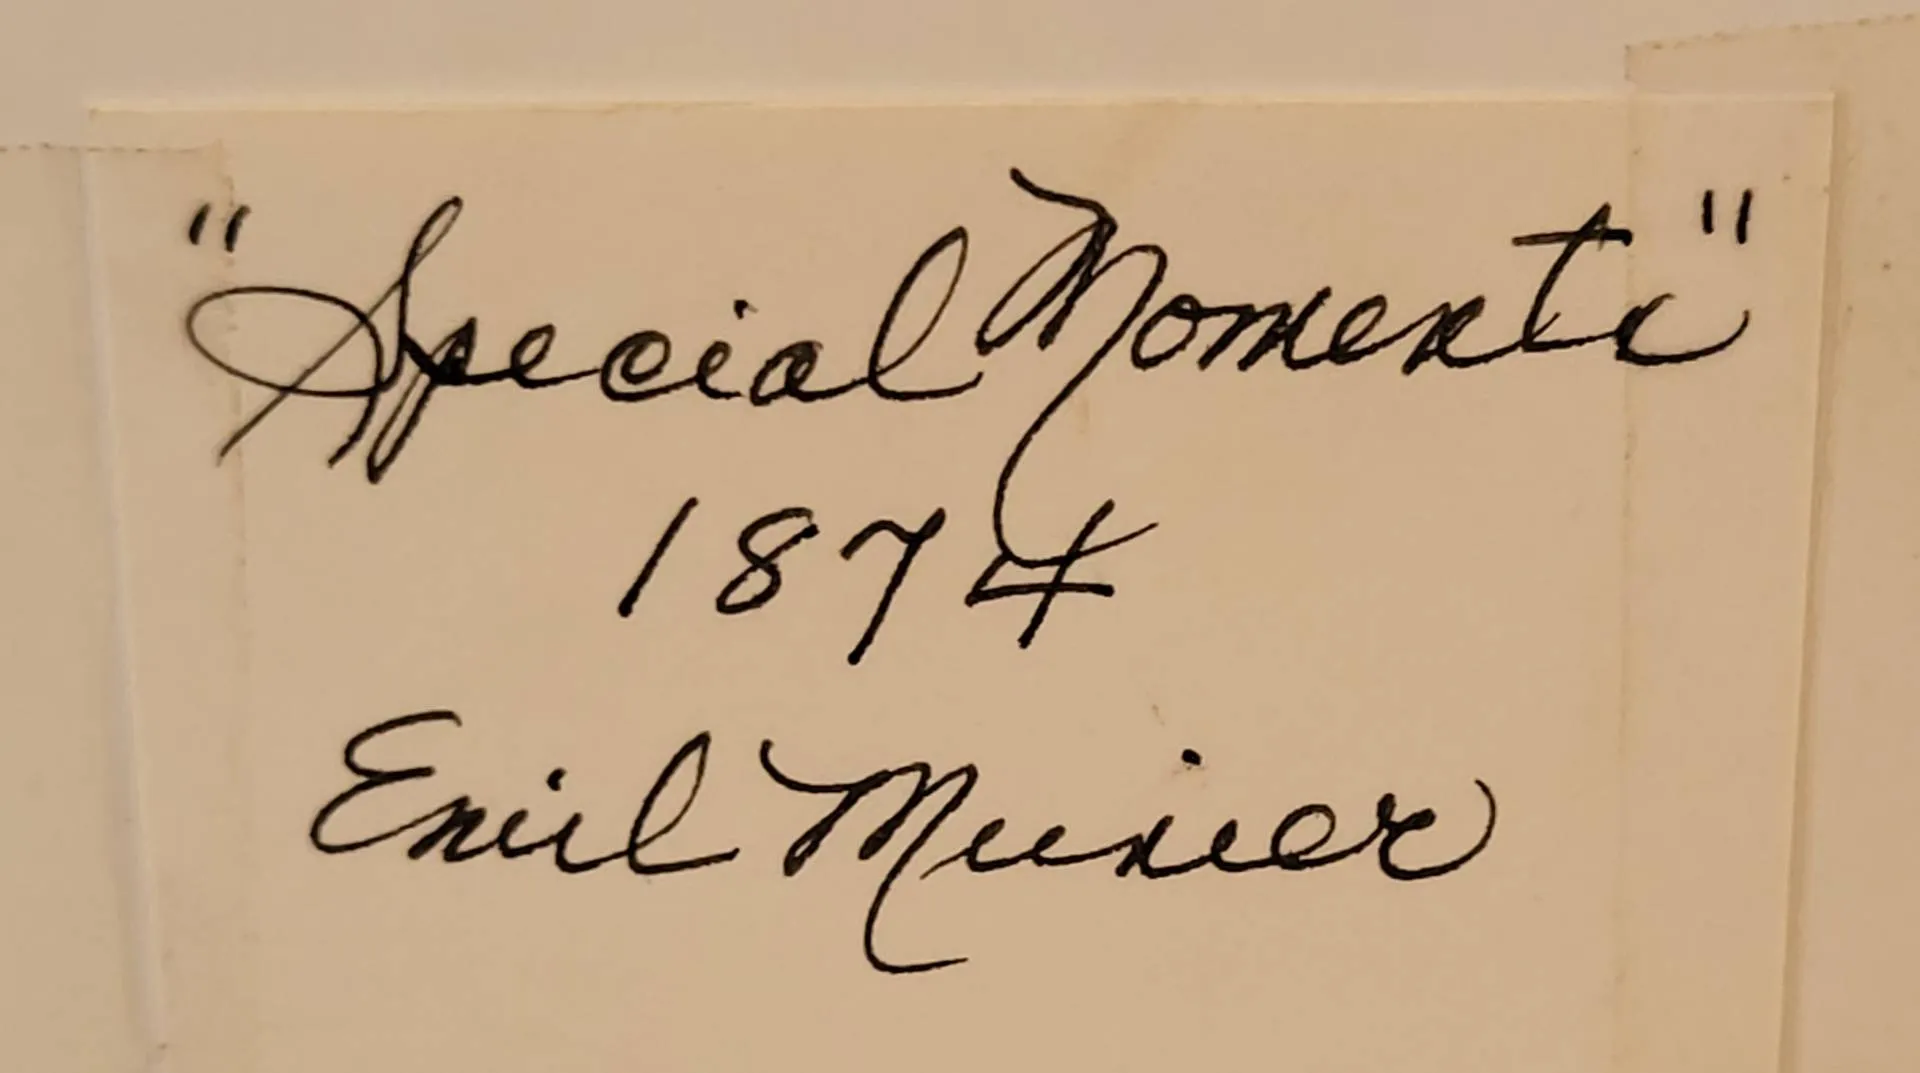 "Special Moments"
1874
Emil Munier